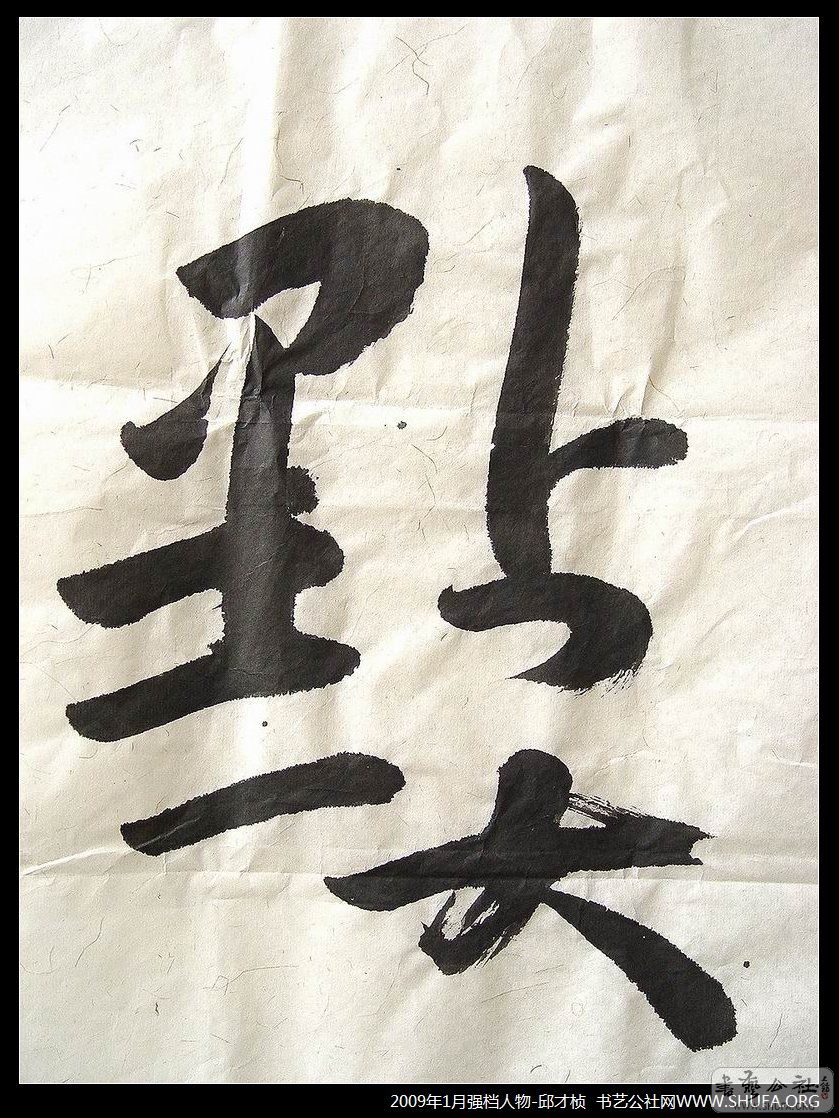 點
大
2009年1月强档人物-邱才桢 书艺公社网WWW.SHUFA.ORG
書藝公社